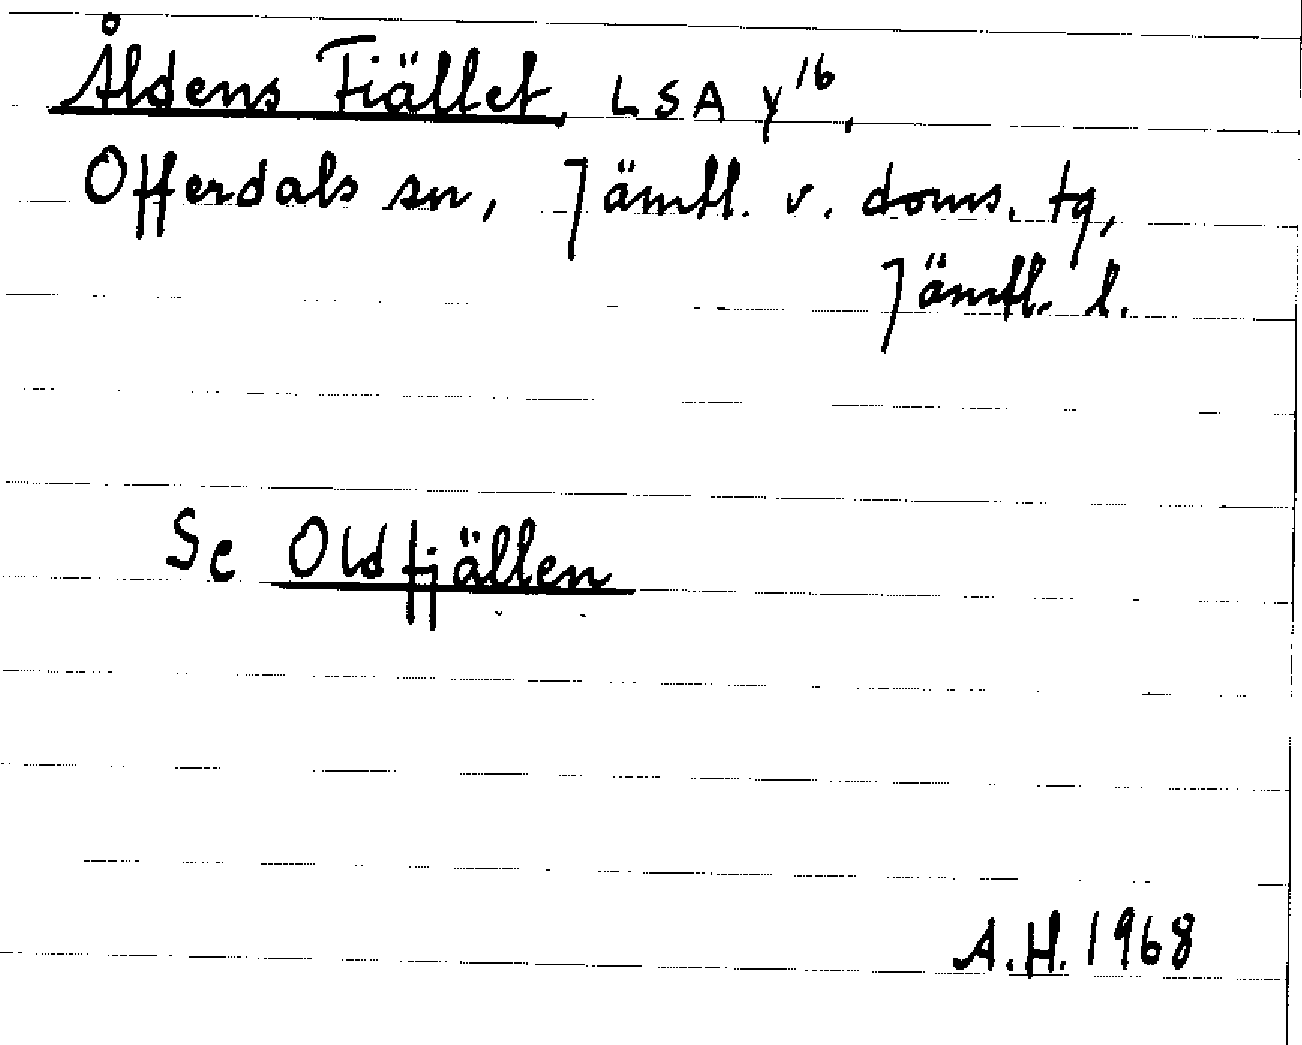 Åldens Fiället, LSA y16,
Offerdals sn, Jämtl. v. doms. tg,
Jämtl. l.
Se Oldfjällen
A.H. 1968